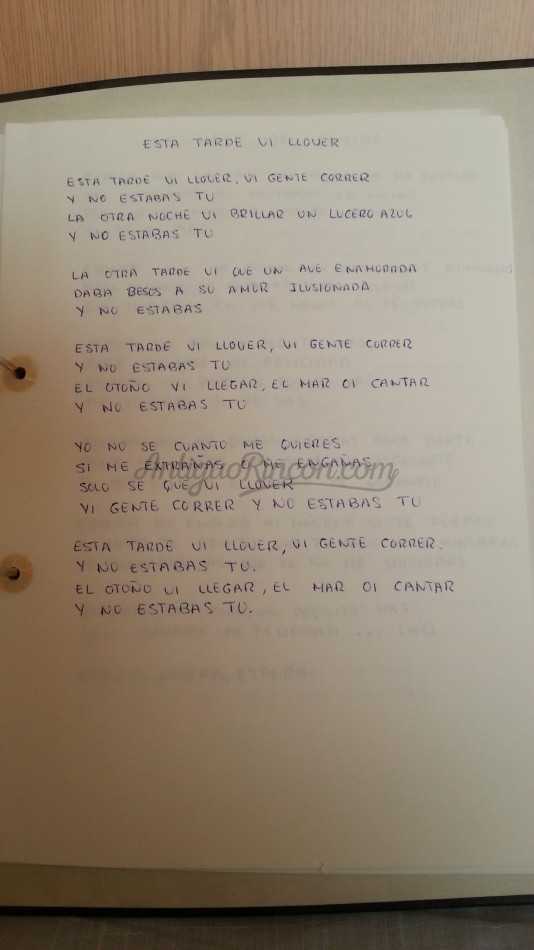 ESTA TARDE VI LLOVER
ESTA TARDE VI LLOVER, VI GENTE CORRER
Y NO ESTABAS TU
LA OTRA NOCHE VI BRILLAR UN LUCERO AZUL
Y NO ESTABAS TU
LA OTRA TARDE VI QUE UN AVE ENAMORADA
DABA BESOS A SU AMOR ILUSIONADA
Y NO ESTABAS
ESTA TARDE VI LLOVER, VI GENTE CORRER
Y NO ESTABAS TU
EL OTOÑO VI LLEGAR, EL MAR OI CANTAR
Y NO ESTABAS TU
YO NO SE CUANTO ME QUIERES
SI ME EXTRAÑAS O ME ENGAÑAS
AntiguoRincon.com
SOLO SE QUE VI LLOVER
VI GENTE CORRER Y NO ESTABAS TU
ESTA TARDE VI LLOVER, VI GENTE CORRER.
Y NO ESTABAS TU.
EL OTOÑO VI LLEGAR, EL MAR OI CANTAR
Y NO ESTABAS TU.